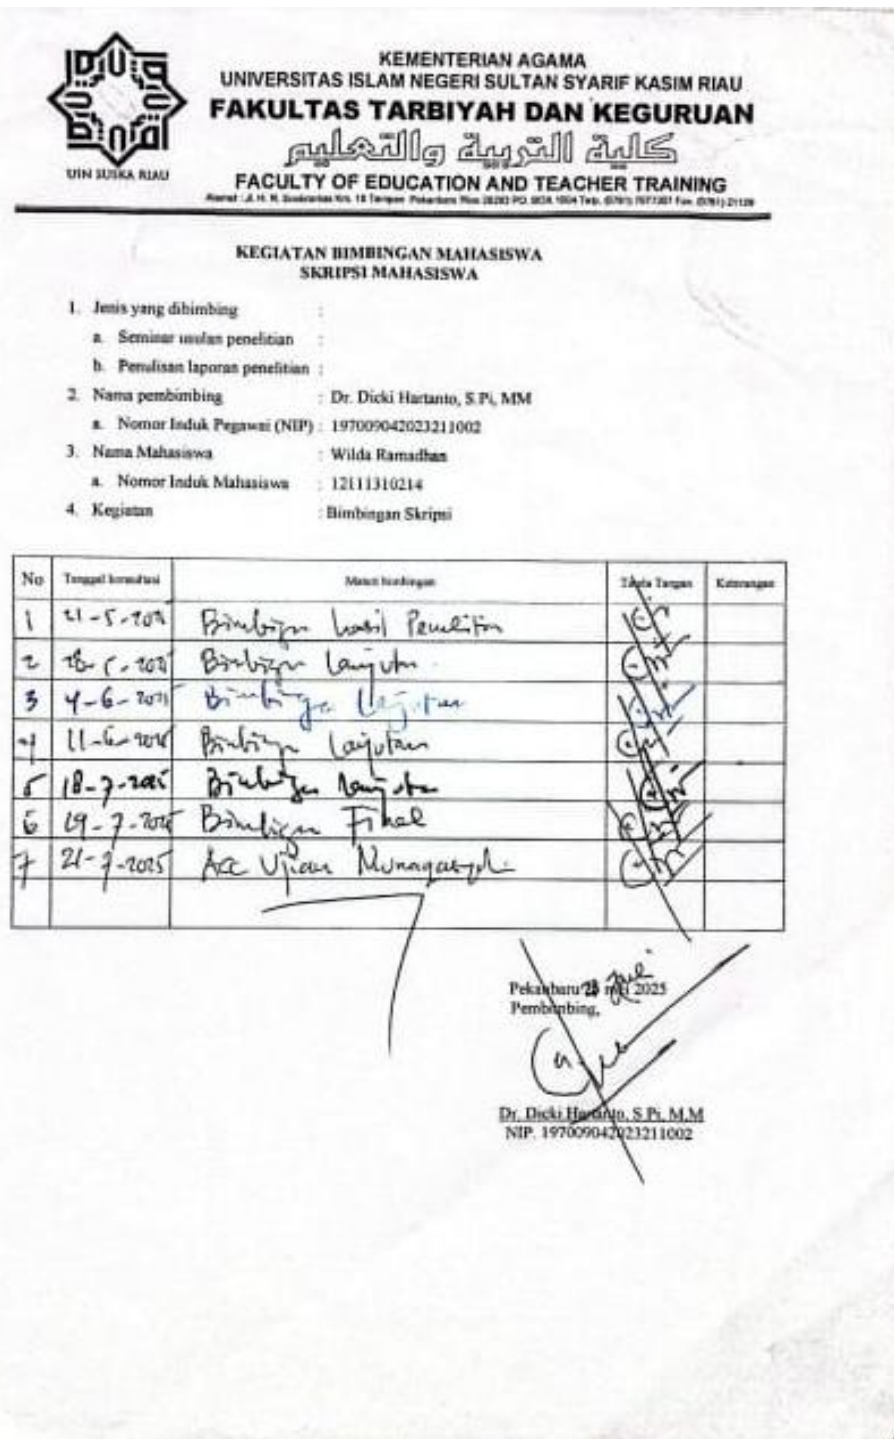 UIN SUSKA RIAU
KEMENTERIAN AGAMA
UNIVERSITAS ISLAM NEGERI SULTAN SYARIF KASIM RIAU
FAKULTAS TARBIYAH DAN KEGURUAN
كلية التربية والتعليم
FACULTY OF EDUCATION AND TEACHER TRAINING
KEGIATAN BIMBINGAN MAHASISWA
SKRIPSI MAHASISWA
1. Jenis yang dibimbing :
a. Seminar usulan penelitian :
b. Penulisan laporan penelitian :
2. Nama pembimbing : Dr. Dicki Hartanto, S.Pi, MM
a. Nomor Induk Pegawai (NIP) : 197009042023211002
3. Nama Mahasiswa : Wilda Ramadhan
a. Nomor Induk Mahasiswa : 12111310214
4. Kegiatan : Bimbingan Skripsi
No Tanggal konsultasi Materi bimbingan Tanda Tangan Keterangan
1 21-5-2025 Bimbingan hasil Penelitian
2 Bimbingan lanjutan
3 4-6-2025 Bimbingan lanjutan
4 11-6-2025 Bimbingan lanjutan
5 18-7-2025 Bimbingan lanjutan
6 19-7-2025 Bimbingan Final
7 21-7-2025 Acc Ujian Munaqasyah
Pekanbaru mei 2025
Pembimbing,
Dr. Dicki Hartanto, S.Pi, M.M
NIP. 197009042023211002